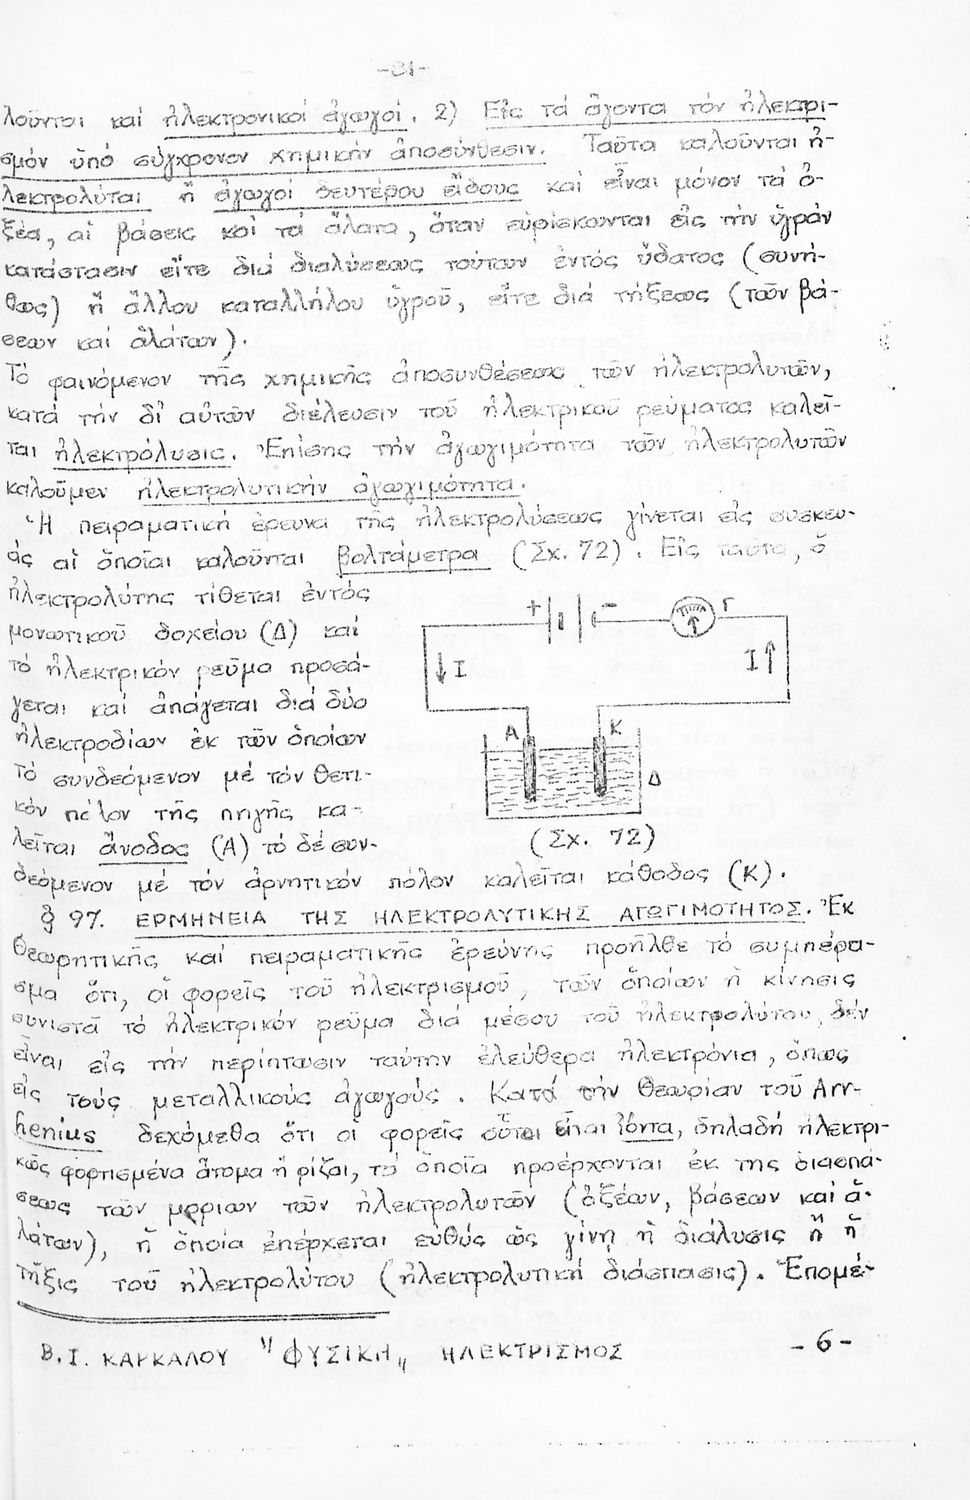 -81-
λοῦνται καί ἠλεκτρονικοί ἀγωγοί. 2) Εἰς τά ἄγοντα τόν ἠλεκτρι-
σμόν ὑπό σύγχρονον χημικήν ἀποσύνθεσιν. Ταῦτα καλοῦνται ἠ-
λεκτρολύται ἤ ἀγωγοί δευτέρου εἴδους καί εἶναι μόνον τά ὀ-
ξέα, αἱ βάσεις καί τά ἅλατα, ὅταν εὑρίσκωνται εἰς τήν ὑγράν
κατάστασιν εἴτε διά διαλύσεως τούτων ἐντός ὕδατος (συνή-
θως) ἤ ἄλλου καταλλήλου ὑγροῦ, εἴτε διά τήξεως (τῶν βά-
σεων καί ἁλάτων).
Τό φαινόμενον τῆς χημικῆς ἀποσυνθέσεως τῶν ἠλεκτρολυτῶν,
κατά τήν δι' αὐτῶν διέλευσιν τοῦ ἠλεκτρικοῦ ρεύματος καλεῖ-
ται ἠλεκτρόλυσις. Ἐπίσης τήν ἀγωγιμότητα τῶν ἠλεκτρολυτῶν
καλοῦμεν ἠλεκτρολυτικήν ἀγωγιμότητα.
Ἡ πειραματική ἔρευνα τῆς ἠλεκτρολύσεως γίνεται εἰς συσκευ-
άς αἱ ὁποῖαι καλοῦνται βολτάμετρα (Σχ. 72). Εἰς ταῦτα, ὁ
ἠλεκτρολύτης τίθεται ἐντός
μονωτικοῦ δοχείου (Δ) καί
τό ἠλεκτρικόν ρεῦμα προσά-
γεται καί ἀπάγεται διά δύο
ἠλεκτροδίων ἐκ τῶν ὁποίων
τό συνδεόμενον μέ τόν θετι-
κόν πόλον τῆς πηγῆς κα-
λεῖται ἄνοδος (Α) τό δέ συν-
+ - Γ
I I
Α Κ
Δ
(Σχ. 72)
δεόμενον μέ τόν ἀρνητικόν πόλον καλεῖται κάθοδος (Κ).
§ 97. ΕΡΜΗΝΕΙΑ ΤΗΣ ΗΛΕΚΤΡΟΛΥΤΙΚΗΣ ΑΓΩΓΙΜΟΤΗΤΟΣ. Ἐκ
θεωρητικῆς καί πειραματικῆς ἐρεύνης προῆλθε τό συμπέρα-
σμα ὅτι, οἱ φορεῖς τοῦ ἠλεκτρισμοῦ, τῶν ὁποίων ἡ κίνησις
συνιστᾶ τό ἠλεκτρικόν ρεῦμα διά μέσου τοῦ ἠλεκτρολύτου, δέν
εἶναι εἰς τήν περίπτωσιν ταύτην ἐλεύθερα ἠλεκτρόνια, ὅπως
εἰς τούς μεταλλικούς ἀγωγούς. Κατά τήν θεωρίαν τοῦ Arr-
henius δεχόμεθα ὅτι οἱ φορεῖς οὗτοι εἶναι ἰόντα, δηλαδή ἠλεκτρι-
κῶς φορτισμένα ἄτομα ἤ ρίζαι, τά ὁποῖα προέρχονται ἐκ της διασπά-
σεως τῶν μορίων τῶν ἠλεκτρολυτῶν (ὀξέων, βάσεων καί ἁ-
λάτων), ἡ ὁποία ἐπέρχεται εὐθύς ὡς γίνη ἡ διάλυσις ἤ ἡ
τῆξις τοῦ ἠλεκτρολύτου (ἠλεκτρολυτική διάσπασις). Ἐπομέ-
Β. Ι. ΚΑΡΚΑΛΟΥ "ΦΥΣΙΚΗ" ΗΛΕΚΤΡΙΣΜΟΣ -6-